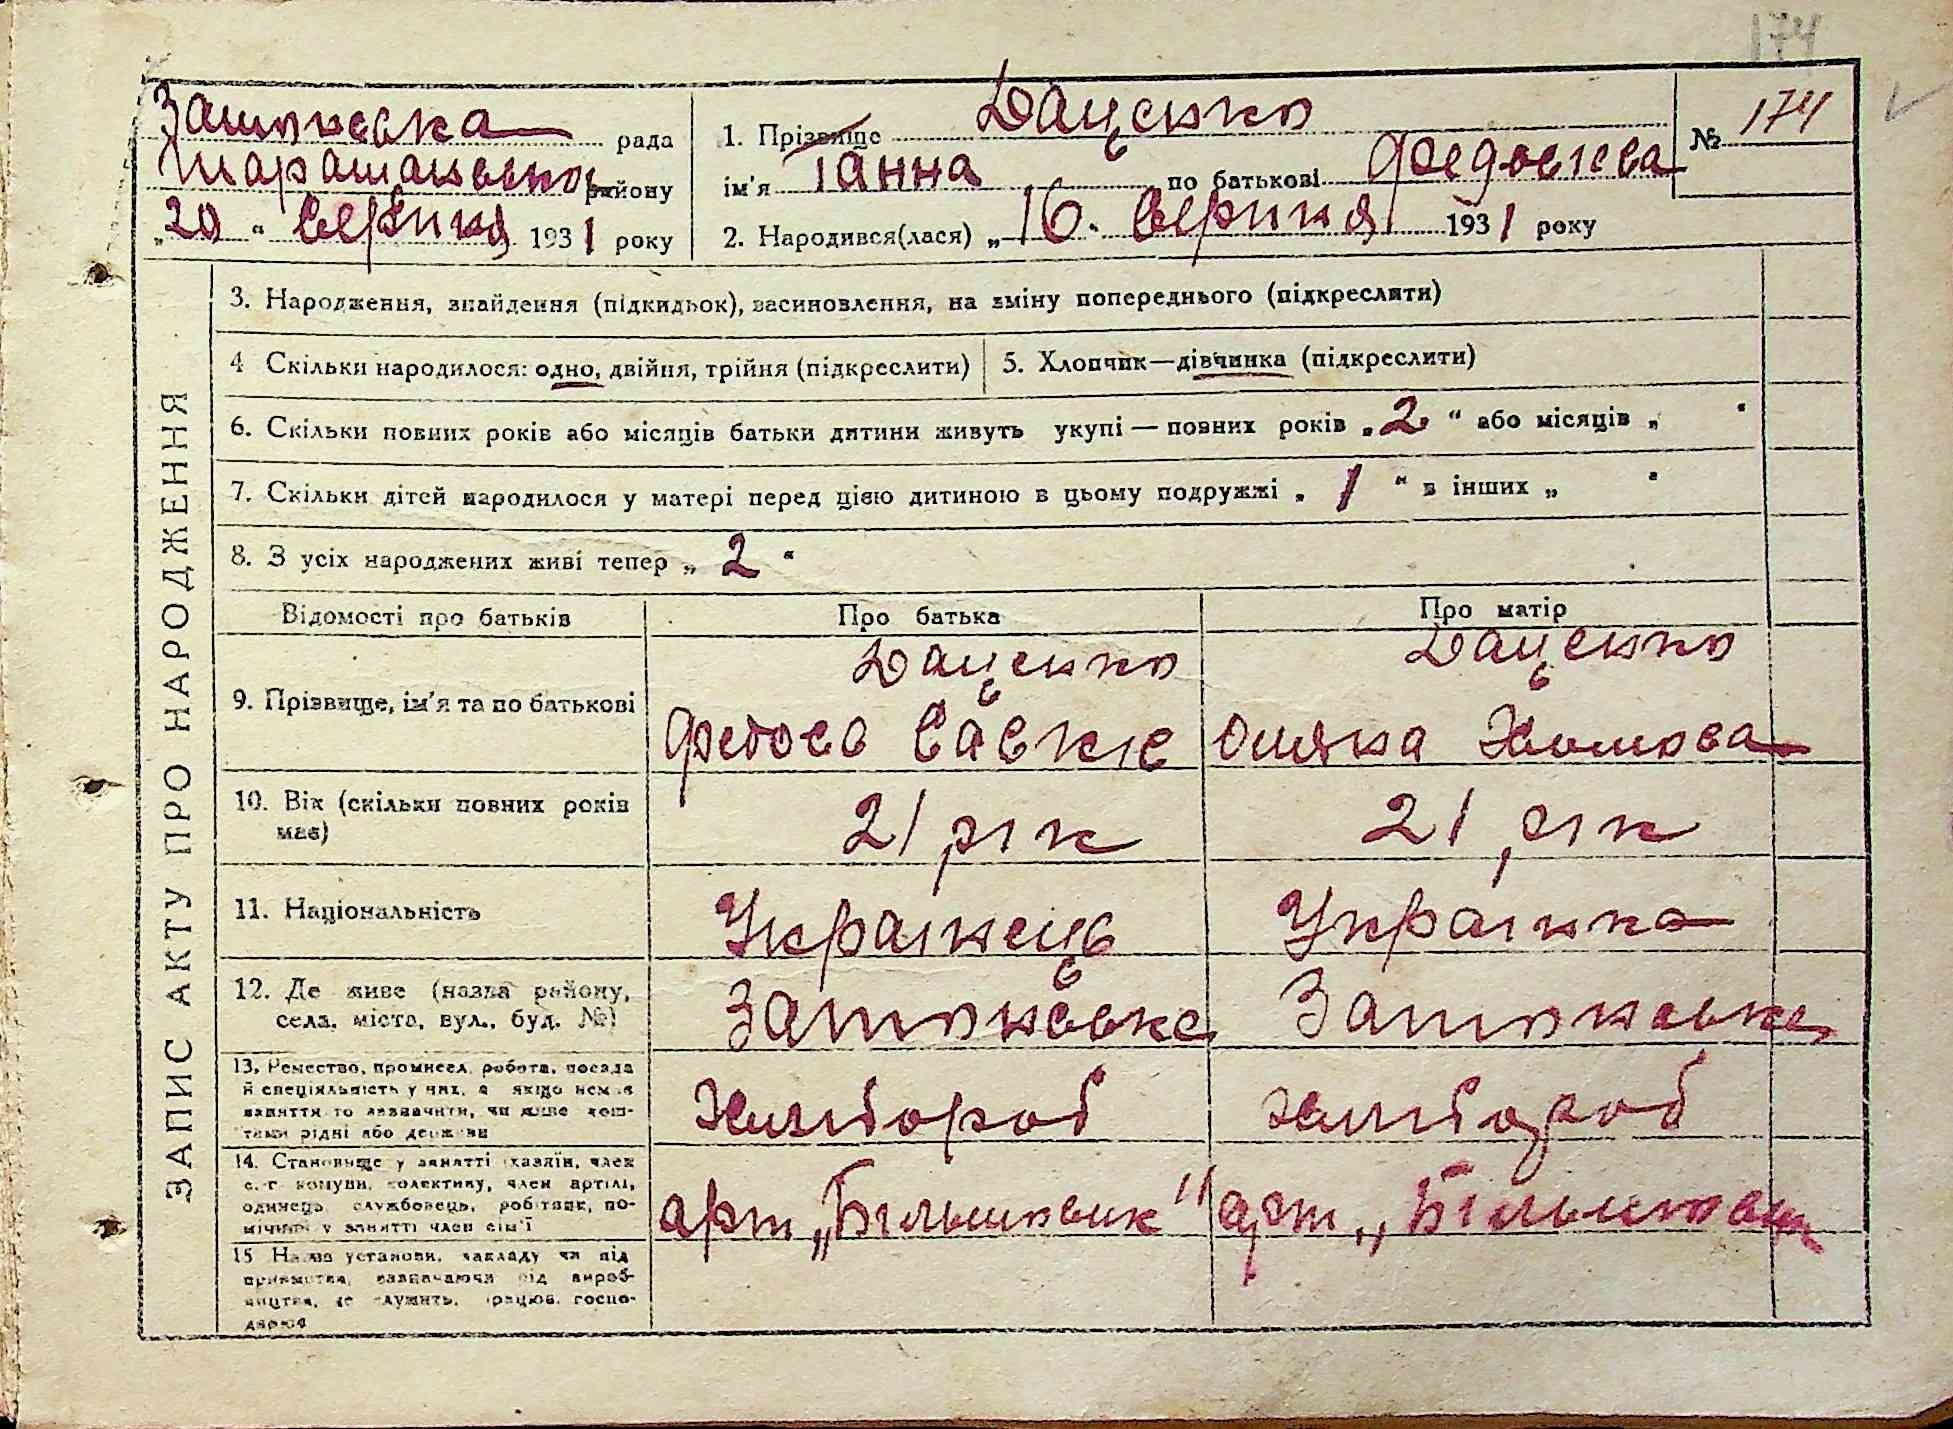 174
Затонська рада
Таращанського району
„20“ серпня 1931 року
1. Прізвище Даценко
ім'я Ганна по батькові Федосієва
№ 174
2. Народився(лася) „16“ серпня 1931 року
ЗАПИС АКТУ ПРО НАРОДЖЕННЯ
3. Народження, знайдення (підкидьок), васиновлення, на зміну попереднього (підкреслити)
4 Скільки народилося: одно, двійня, трійня (підкреслити)
5. Хлопчик—дівчинка (підкреслити)
6. Скільки повних років або місяців батьки дитини живуть укупі — повних років „2“ або місяців „ “
7. Скільки дітей народилося у матері перед цією дитиною в цьому подружжі „1“ в інших „ “
8. З усіх народжених живі тепер „2“
Відомості про батьків
Про батька
Про матір
9. Прізвище, ім'я та по батькові
Даценко
Федось Савкіє
Даценко
Хомова
10. Вік (скільки повних років
має)
21 рік
21 рік
11. Національність
Українець
Українка
12. Де живе (назва району,
села, міста, вул., буд. №)
13. Ремество, промисел, робота, посада
й спеціяльність у них, а якщо немає
заняття то зазначити, чи живе кош-
тами рідні або держави
Хлібороб
хлібороб
14. Становище у занятті (хазяїн, член
с.-г комуни, колективу, член артілі,
одинець, службовець, робітник, по-
мічний у занятті член сім'ї
арт „Більшовик"
арт „Більшовик
15 Назва установи, закладу чи під
приємства, зазначаючи від вироб-
ництва, де служить, працює, госпо-
дарює